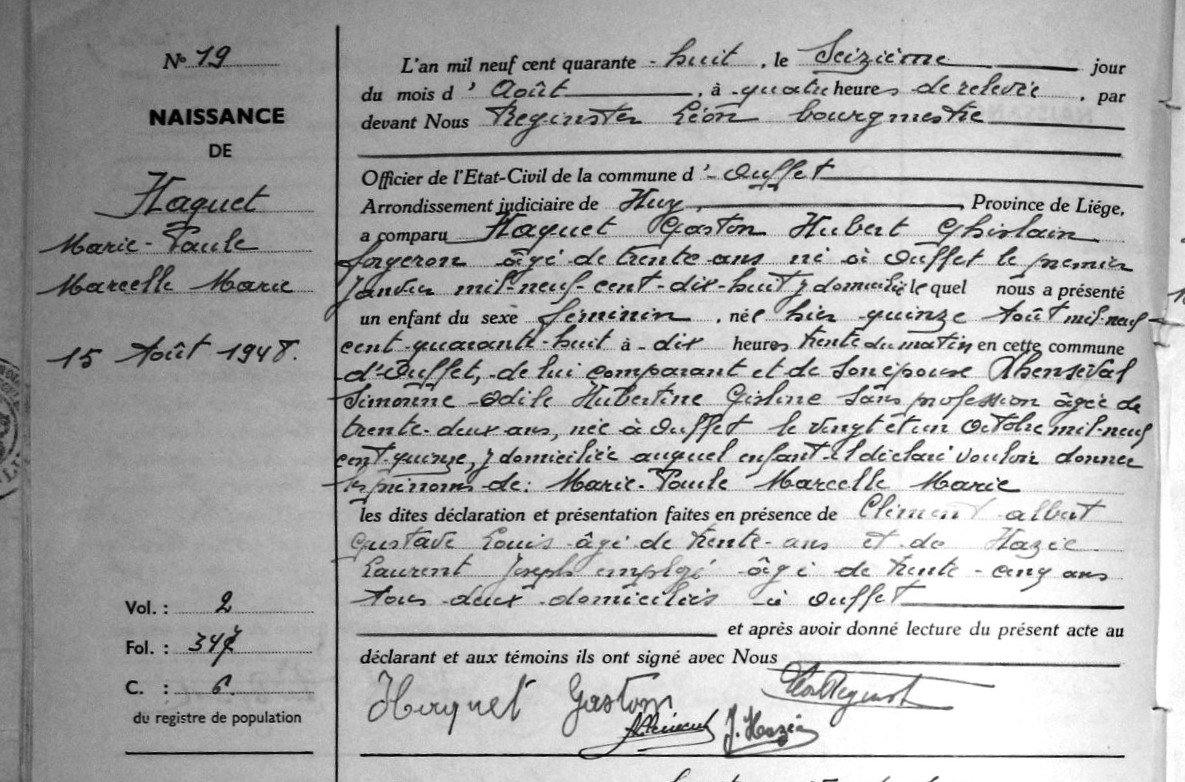 N° 19
NAISSANCE
DE
Haquet
Marie-Paule
Marcelle Marie
15 Août 1948.
Vol. : 2
Fol. : 347
C. : 6.
du registre de population
L'an mil neuf cent quarante - huit, le Seizième jour
du mois d' Août, à quatre heures de relevée, par
devant Nous Reginster Léon bourgmestre
Officier de l'Etat-Civil de la commune d'- Ouffet
Arrondissement judiciaire de Huy, Province de Liége,
a comparu Haquet Gaston Hubert Ghislain
forgeron âgé de trente ans né à Ouffet le premier
Janvier mil-neuf-cent-dix-huit y domicilié lequel nous a présenté
un enfant du sexe féminin, née hier quinze Août mil-neuf-
cent-quarante-huit à dix heures trente du matin en cette commune
d'Ouffet, de lui comparant et de son épouse
Simonne Odile Hubertine Gisline sans profession âgée de
trente-deux ans, née à Ouffet le vingt et un Octobre mil neuf
cent quinze, y domiciliée auquel enfant il déclare vouloir donner
les prénoms de: Marie-Paule Marcelle Marie
les dites déclaration et présentation faites en présence de Clément albert
Gustave Louis âgé de trente-ans et de Hazée
Laurent Joseph employé âgé de trente-cinq ans
tous deux domiciliés à Ouffet
et après avoir donné lecture du présent acte au
déclarant et aux témoins ils ont signé avec Nous
Haquet Gaston
J. Hazée